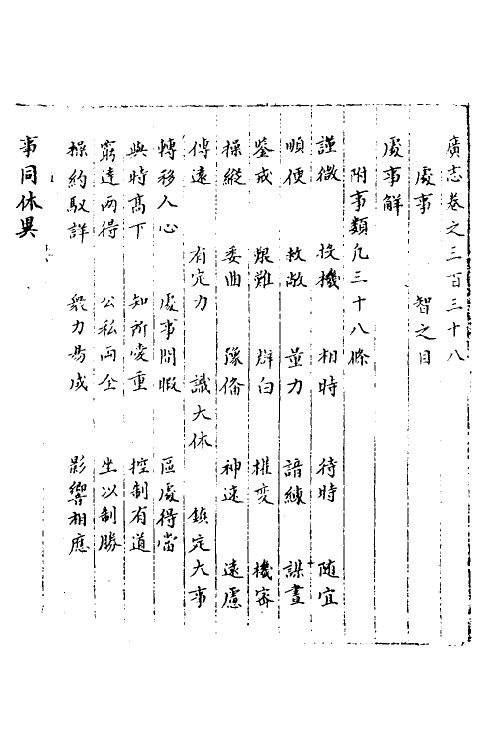 廣志卷之三百三十八
處事 智之目
處事解
附事類凡三十八條
謹微 投機 相時 待時 隨宜
順便 救敝 量力 諳練 謀畫
鑒戒 艱難 辨白 權變 機審
操縱 委曲 豫備 神速 遠慮
傳遠 有定力 識大体 鎮定大事
轉移人心 處事閒暇 區處得當
與時髙下 知所愛重 控制有道
窮達兩得 公私兩全 坐以制勝
操約馭詳 衆力易成 影響相應
事同休異